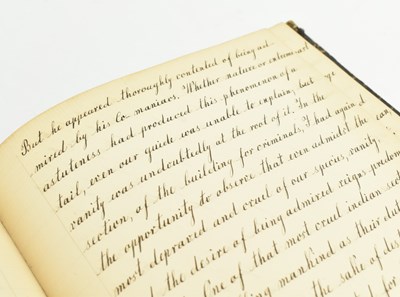 But he appeared thoroughly contented of being ad-
mired by his co-maniacs. Whether nature or
astuteness had produced this phenomenon of a
tail, even our guide was unable to explain, but
vanity was undoubtedly at the root of it. In the
section, of the building for criminals, I had again,
the opportunity to observe that even admidst the
most depraved and cruel of our species, vanity
and the desire of being admired reigns
One of that most cruel indian
mankind as their
the sake of
for